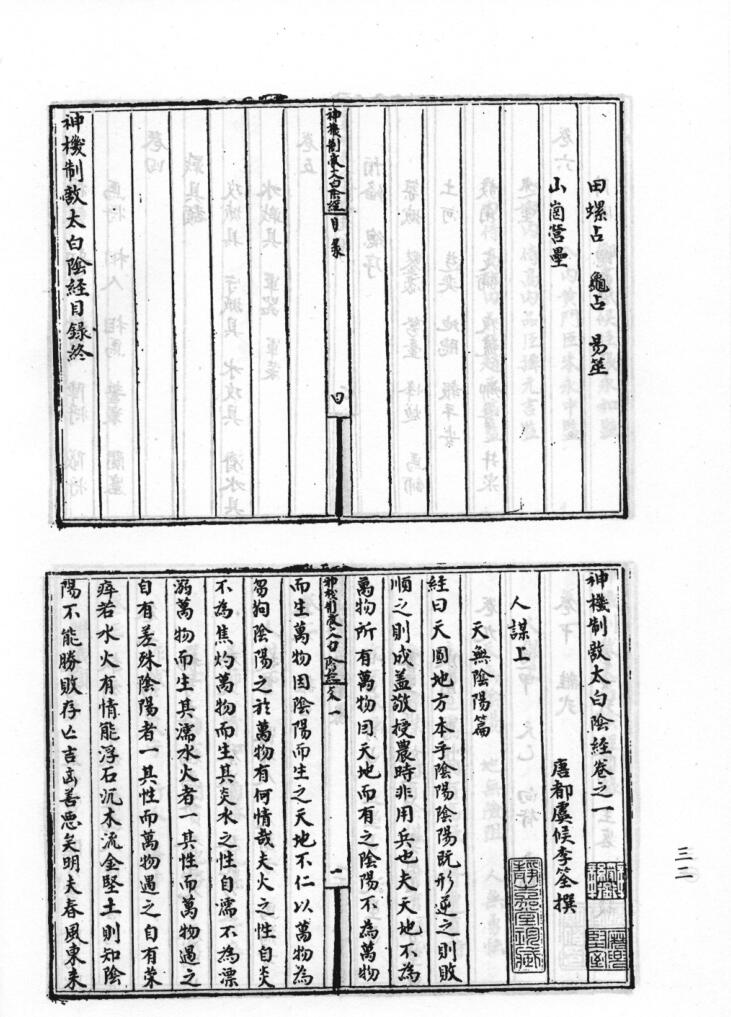 田螺占　龜占　易筮
山崗營壘
神機制敵太白陰經目錄
四
神機制敵太白陰経目錄終
神機制敵太白陰経卷之一
唐都虞候李筌撰
人謀上
天無陰陽篇
経曰天圓地方本乎陰陽陰陽既形逆之則敗
順之則成盖敬授農時非用兵也夫天地不為
萬物所有萬物因天地而有之陰陽不為萬物
神機制敵太白陰経卷一
一
而生萬物因陰陽而生之天地不仁以萬物為
芻狗陰陽之於萬物有何情哉夫火之性自炎
不為焦灼萬物而生其炎水之性自濡不為漂
溺萬物而生其濡水火者一其性而萬物遇之
自有差殊陰陽者一其性而萬物遇之自有荣
瘁若水火有情能浮石沉木流金堅土則知陰
陽不能勝敗存亡吉凶善惡矣明夫春風東来
三二